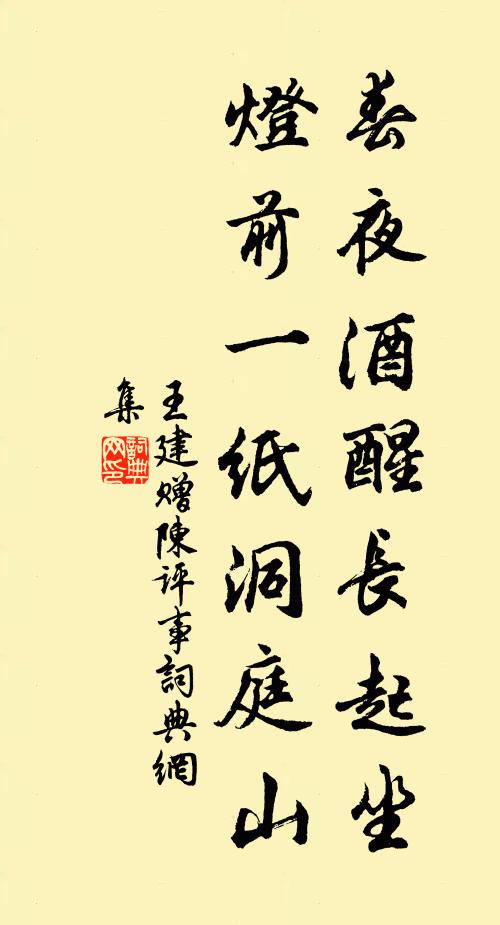 春夜酒醒長起坐
燈前一紙洞庭山
王建贈陳評事詞典網
集
詞典
网印